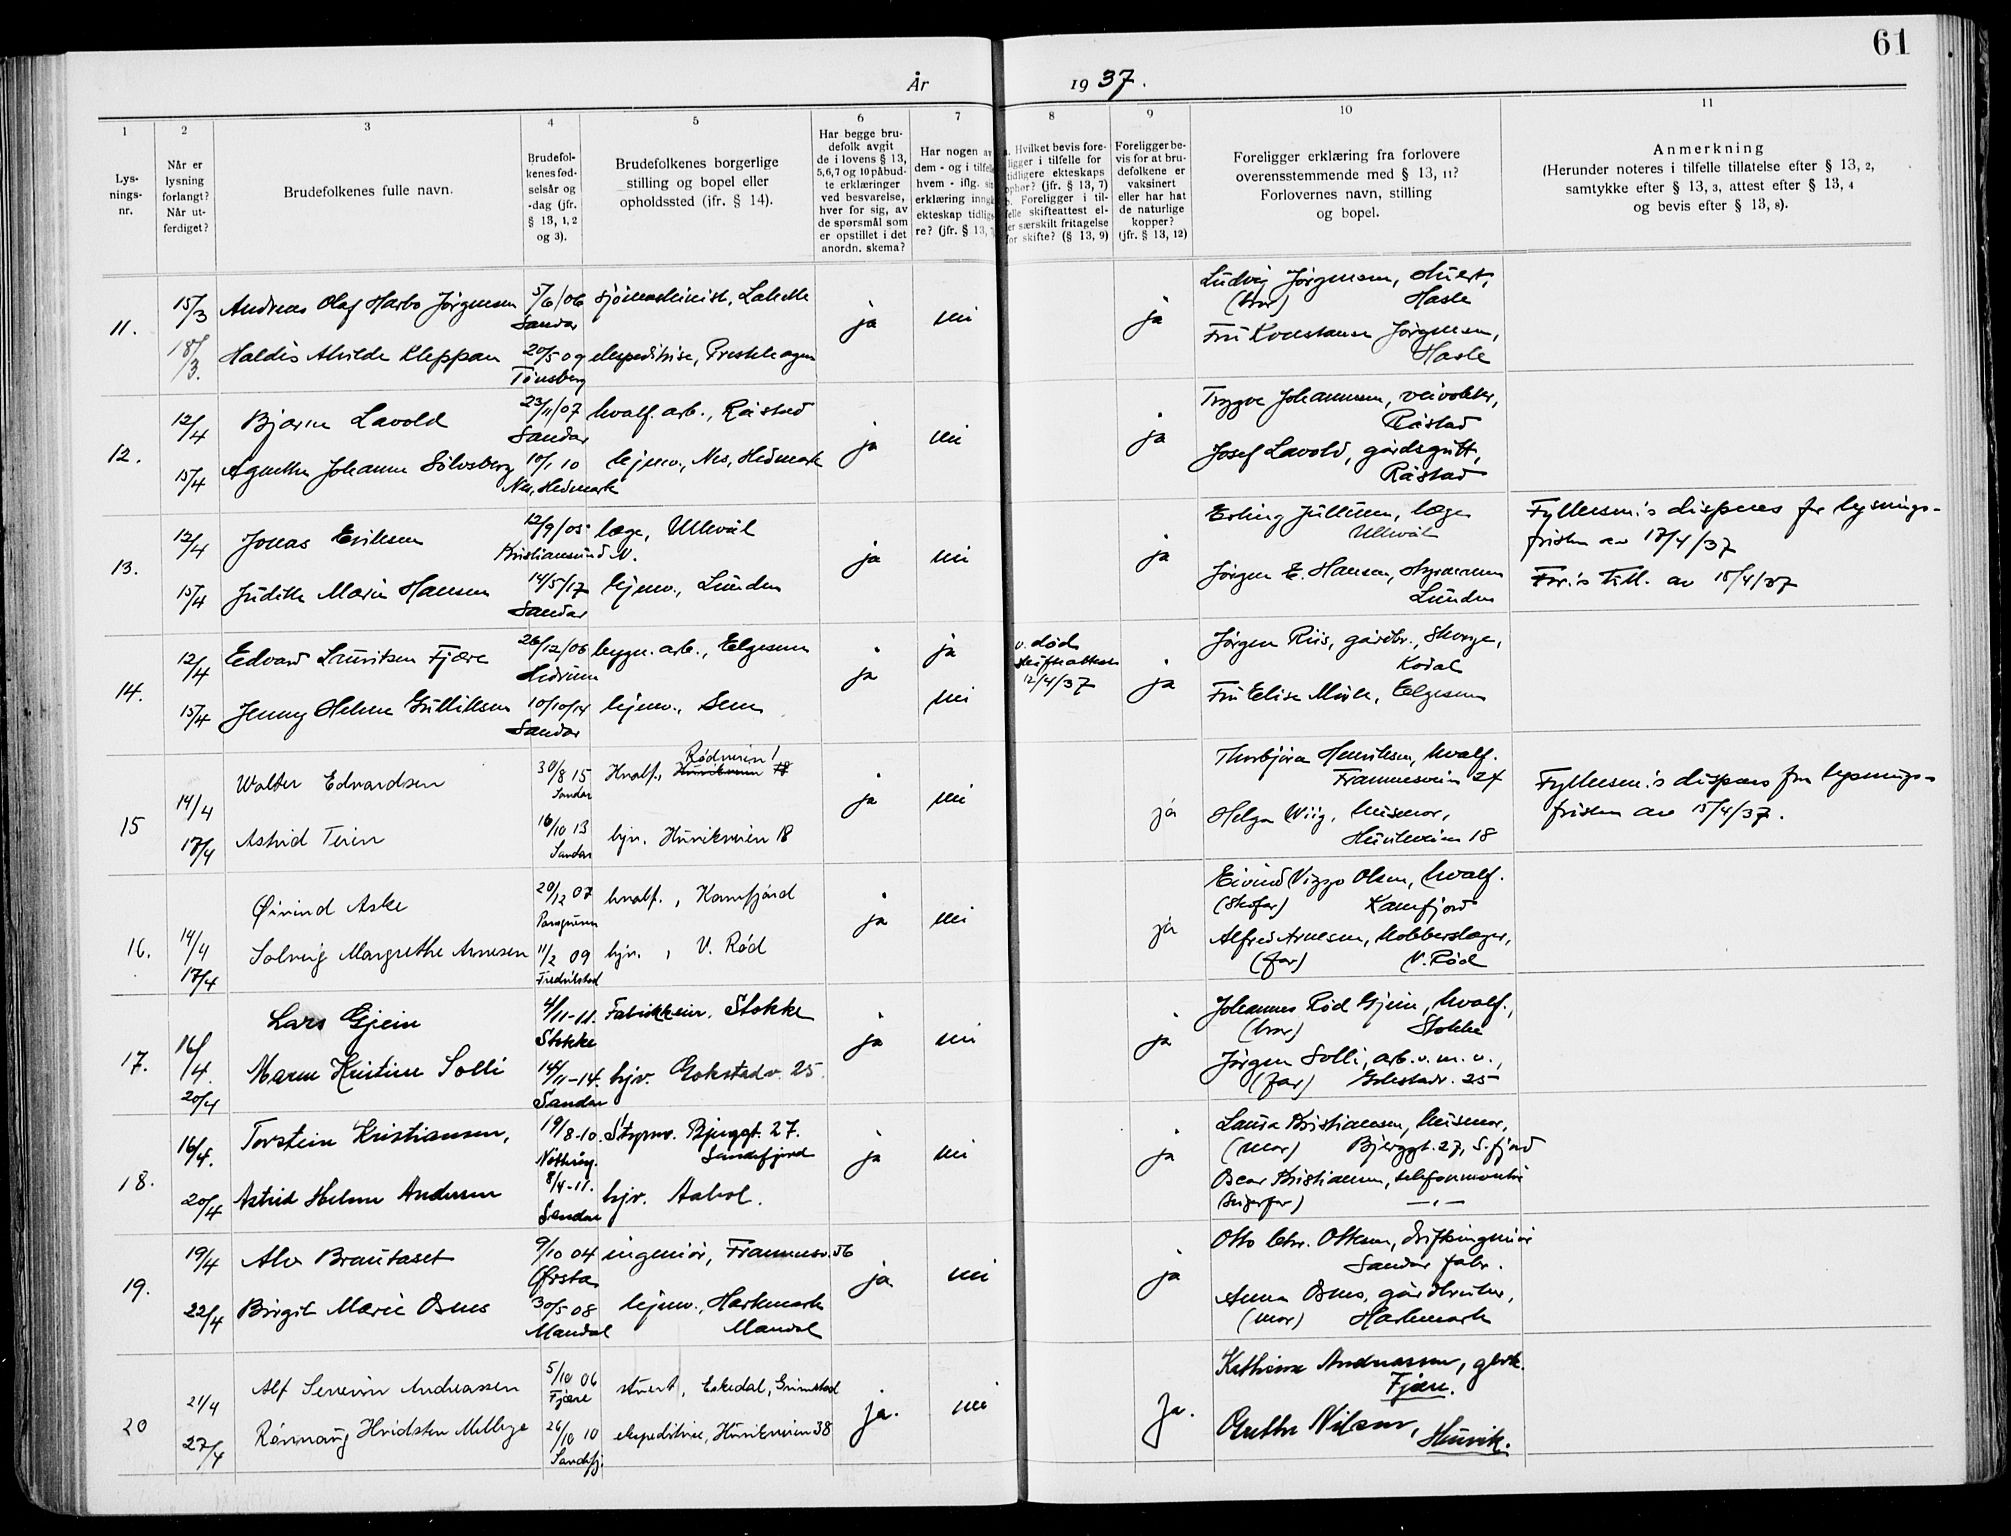 61
År 1937.
1 2 3 4 5 6 7 8 9 10 11
Lys-
nings-
nr.
Når er
lysning
forlangt?
Når ut-
ferdiget?
Brudefolkenes fulle navn.
Brudefol-
kenes fød-
selsår og
-dag (jfr.
§ 13, 1, 2
og 3).
Brudefolkenes borgerlige
stilling og bopel eller
opholdssted (jfr. § 14).
Har begge bru-
defolk avgit
de i lovens § 13,
5,6,7 og 10 påbud-
te erklæringer
ved besvarelse,
hver for sig, av
de spørsmål som
er opstillet i det
anordn. skema?
Har nogen av
dem - og i tilfelle
hvem - iflg. sin
erklæring inngå
ekteskap tidlige
re? (jfr. § 13, 7
a. Hvilket bevis fore-
ligger i tilfelle for
tidligere ekteskaps
ophør? (jfr. § 13, 7)
b. Foreligger i til-
felle skifteattest el-
ler særskilt fritagelse
for skifte? (§ 13, 9)
Foreligger be-
vis for at bru-
defolkene er
vaksinert
eller har hat
de naturlige
kopper?
(jfr. § 13, 12)
Foreligger erklæring fra forlovere
overensstemmende med § 13, 11?
Forlovernes navn, stilling
og bopel.
Anmerkning
(Herunder noteres i tilfelle tillatelse efter § 13, 2,
samtykke efter § 13, 3, attest efter § 13, 4
og bevis efter § 13, 8).
11.
15/3 Andreas Olaf Harbo Jørgensen 5/6/06 sjömaskinist,
Sandar
18/3. Haldis Alvilde Kleppan 20/5 09 ekspeditrise, Presthagen
Tönsberg
ja nei ja
Ludvig Jørgensen,
(bror) Hasle
Fru Konstanse Jørgensen,
Hasle
12.
12/4 Bjarne Lavold 23/11/07 hvalf. arb., Råstad
Sandar
15/4 Agnethe Johanne Sölvsberg 10/1 10 hjemv., Nes, Hedmark
Nes, Hedmark
ja nei ja
Trygve Johannessen, veivokter,
Råstad
Josef Lavold, gårdsgutt,
Råstad
13.
12/4 Jonas Eriksen 12/9/05 læge, Ullevål
Kristiansund N.
15/4 Judith Marie Hansen 14/5/17 hjemv., Lunden
Sandar
ja nei ja
Erling Jullum, læge
Ullevål
Jørgen E. Hansen, styrmann
Lunden
Fylkesm.'s dispens for lysnings-
fristen av 17/4/37
For.'s till. av 15/4/37
14.
12/4 Edvard Lauritsen Fjære 26/12/06 bygn. arb., Elgesem
Hedrum
15/4 Jenny Helene Gulliksen 10/10/14 hjemv., Sem
Sandar
ja ja
nei
v. død
skifteattest
12/4/37
ja
Jørgen Riis, gårdbr., Skorge,
Kodal
Fru Elise Moræ, Elgesem
15
14/4 Walter Edvardsen 30/8 15 Hvalf., Rødveien 1
Sandar
17/4 Astrid Teien 16/10 13 hjv. Hunikveien 18
Sandar
ja nei ja
Thorbjörn Henriksen, hvalf.
Framnesveien 24
Helga Wiig, husmor,
Hunikveien 18
Fylkesm.'s dispens fra lysnings-
fristen av 15/4/37.
16.
Øivind Aske 20/12 07 hvalf., Kamfjord
Porsgrunn
14/4 Solveig Margrethe Arnesen 11/2 09 hjv., V. Rød
17/4 Fredrikstad
ja nei ja
Eivind Viggo Olsen, hvalf.
(skofar) Kamfjord
Alfred Arnesen, kobberslager,
(far) V. Rød
17.
Lars Gjein 4/11-11. Fabrikkeier. Stokke
16/4. Stokke
Maren Kristine Solli 14/11-14. hjv. Gokstadv. 25.
20/4 Sandar
ja nei ja
Johannes Rød Gjein, hvalf.,
(bror) Stokke
Jørgen Solli, arb. v. m. v.,
(far) Gokstadv. 25
18.
16/4. Torstein Kristiansen, 19/8-10. Styrm. Bjerggt. 27.
Nøtterøy. Sandefjord
20/4 Astrid Helene Andersen 8/4-11. hjv. Aabol.
Sandar
ja nei ja
Laura Kristiansen, husmor,
(mor) Bjerggt. 27, S.fjord
Oscar Kristiansen, telefonmontör
— „ —
19.
19/4 Alv Brautaset 9/10 04 ingeniör, Framnesv. 56
Ørsta
22/4 Birgit Marie Osnes 30/5 08 hjemv., Harkmark
Mandal Mandal
ja nei ja
Otto Chr. Ottesen, driftsingeniör
Sandar fabr.
Anna Osnes, gårdbruker,
(mor) Harkmark
20
21/4 Alf Severin Andreassen 5/10 06 stuert, Eskedal, Grimstad
Fjære
27/4 Rönnaug Hvidsten Mellege 26/10 10 ekspeditrise, Hunikveien 38
Sandefj.
ja. nei Ja.
Kathinka Andreassen, gbrk.
Fjære.
Grethe Nilsen,
Hunik.